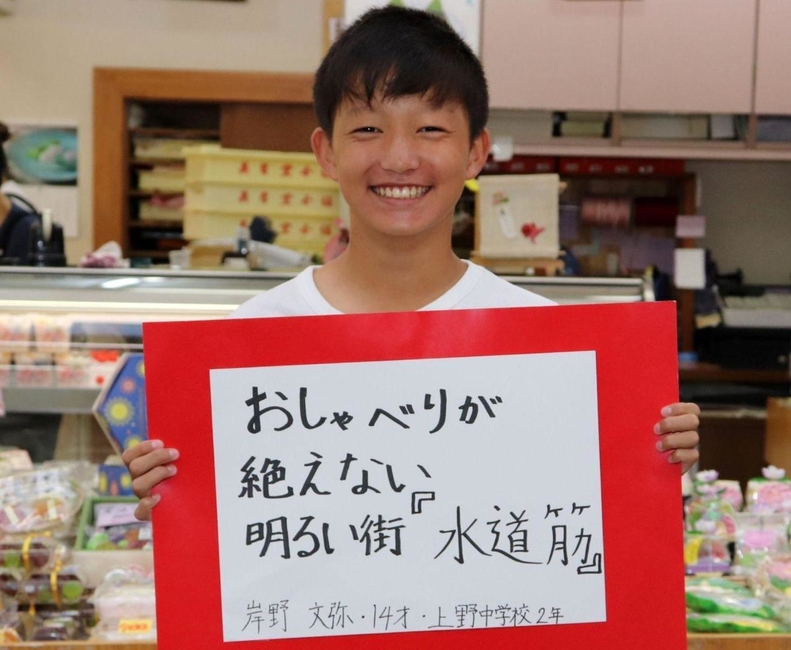 おしゃべりが
絶えない
明るい街『水道筋』
岸野 文弥・14才・上野中学校2年